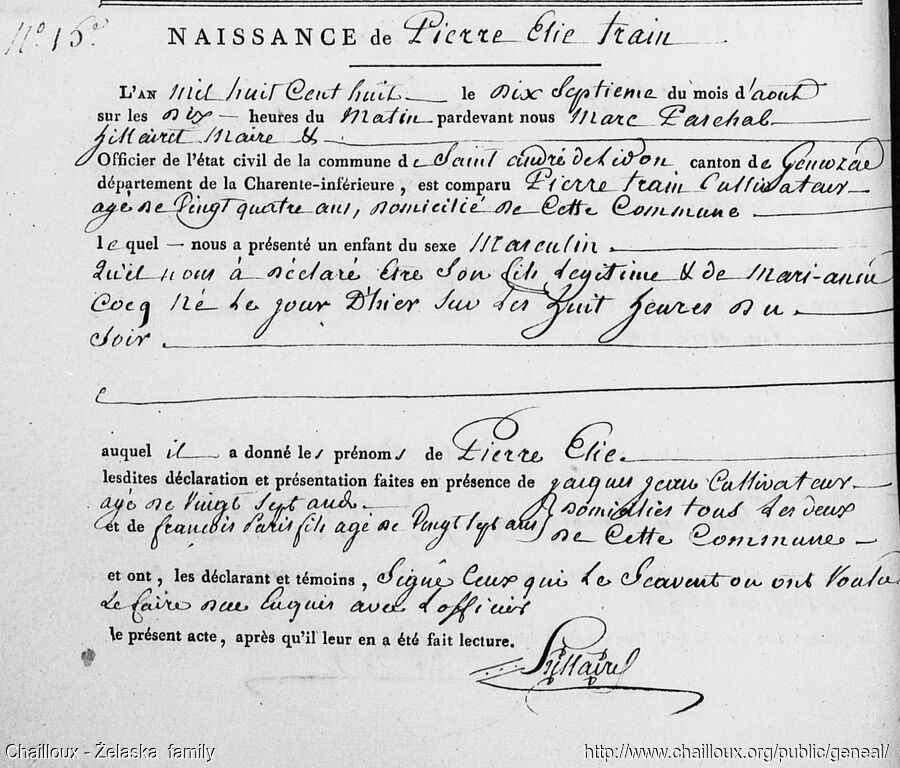 N.º 15.e
NAISSANCE de Pierre Elie train
L'AN mil huit Cent huit le dix Septieme du mois d'aout
sur les dix heures du Matin pardevant nous Marc Paschal
hillairet Maire &
Officier de l'état civil de la commune de Saint andré de lidon canton de Gemozac
département de la Charente-inférieure, est comparu Pierre train Cultivateur
agé de Vingt quatre ans, domicilié de Cette Commune
le quel nous a présenté un enfant du sexe Masculin
qu'il nous à déclaré être Son fils legitime & de Mari-anne
Cocq Né Le jour D'hier Sur Les huit heures Du
Soir
auquel il a donné les prénoms de Pierre Elie
lesdites déclaration et présentation faites en présence de jacques jean Cultivateur
agé de Vingt Sept ans
et de francois Paris fils agé de Vingt Sept ans } Domiciliés tous Les deux
de Cette Commune
et ont, les déclarant et témoins, Signé Ceux qui Le Scavent ou ont Voulu
Le faire Enquis avec L'officier
le présent acte, après qu'il leur en a été fait lecture.
Chailloux - Żelaska family
http://www.chailloux.org/public/geneal/